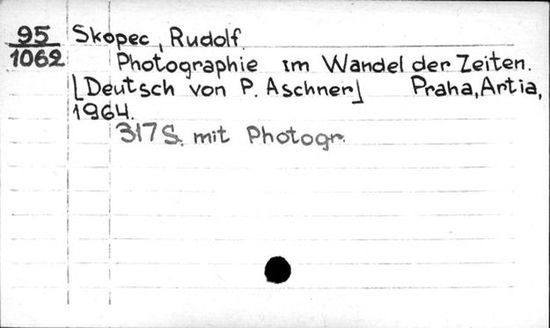 95 Skopec, Rudolf.
1062 Photographie im Wandel der Zeiten.
[Deutsch von P. Aschner] Praha, Artia,
1964.
317 S. mit Photogr.